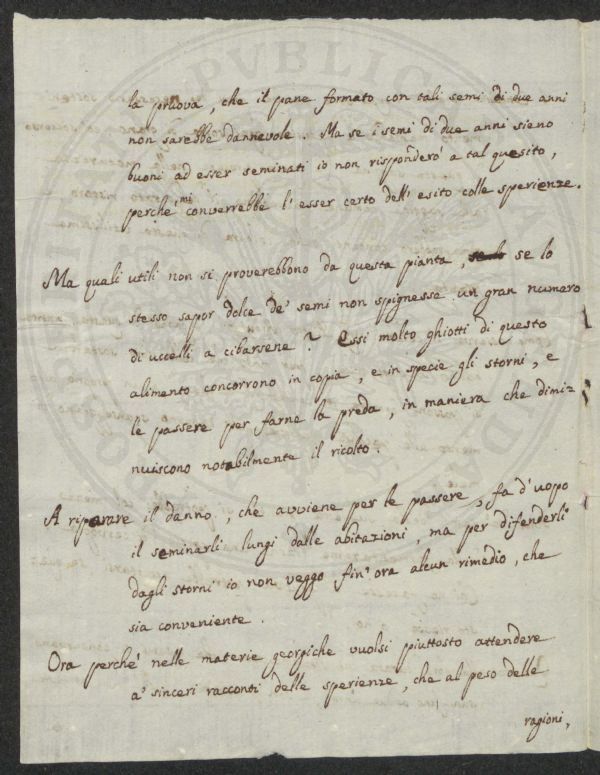 la pruova, che il pane formato con tali semi di due anni
non sarebbe dannevole. Ma se i semi di due anni sieno
buoni ad esser seminati io non risponderó a tal quesito,
perché mi converrebbe l'esser certo dell'esito colle sperienze.
Ma quali utili non si proverebbono da questa pianta, se lo
stesso sapor dolce de' semi non spignesse un gran numero
di uccelli a cibarsene? Essi molto ghiotti di questo
alimento concorrono in copia, e in specie gli storni, e
le passere per farne la preda, in maniera che dimi-
nuiscono notabilmente il ricolto.
A riparare il danno, che avviene per le passere, fa d'uopo
il seminarli lungi dalle abitazioni, ma per difenderli
dagli storni io non veggo fin'ora alcun rimedio, che
sia conveniente.
Ora perché nelle materie georgiche vuolsi piuttosto attendere
a' sinceri racconti delle sperienze, che al peso delle
ragioni,